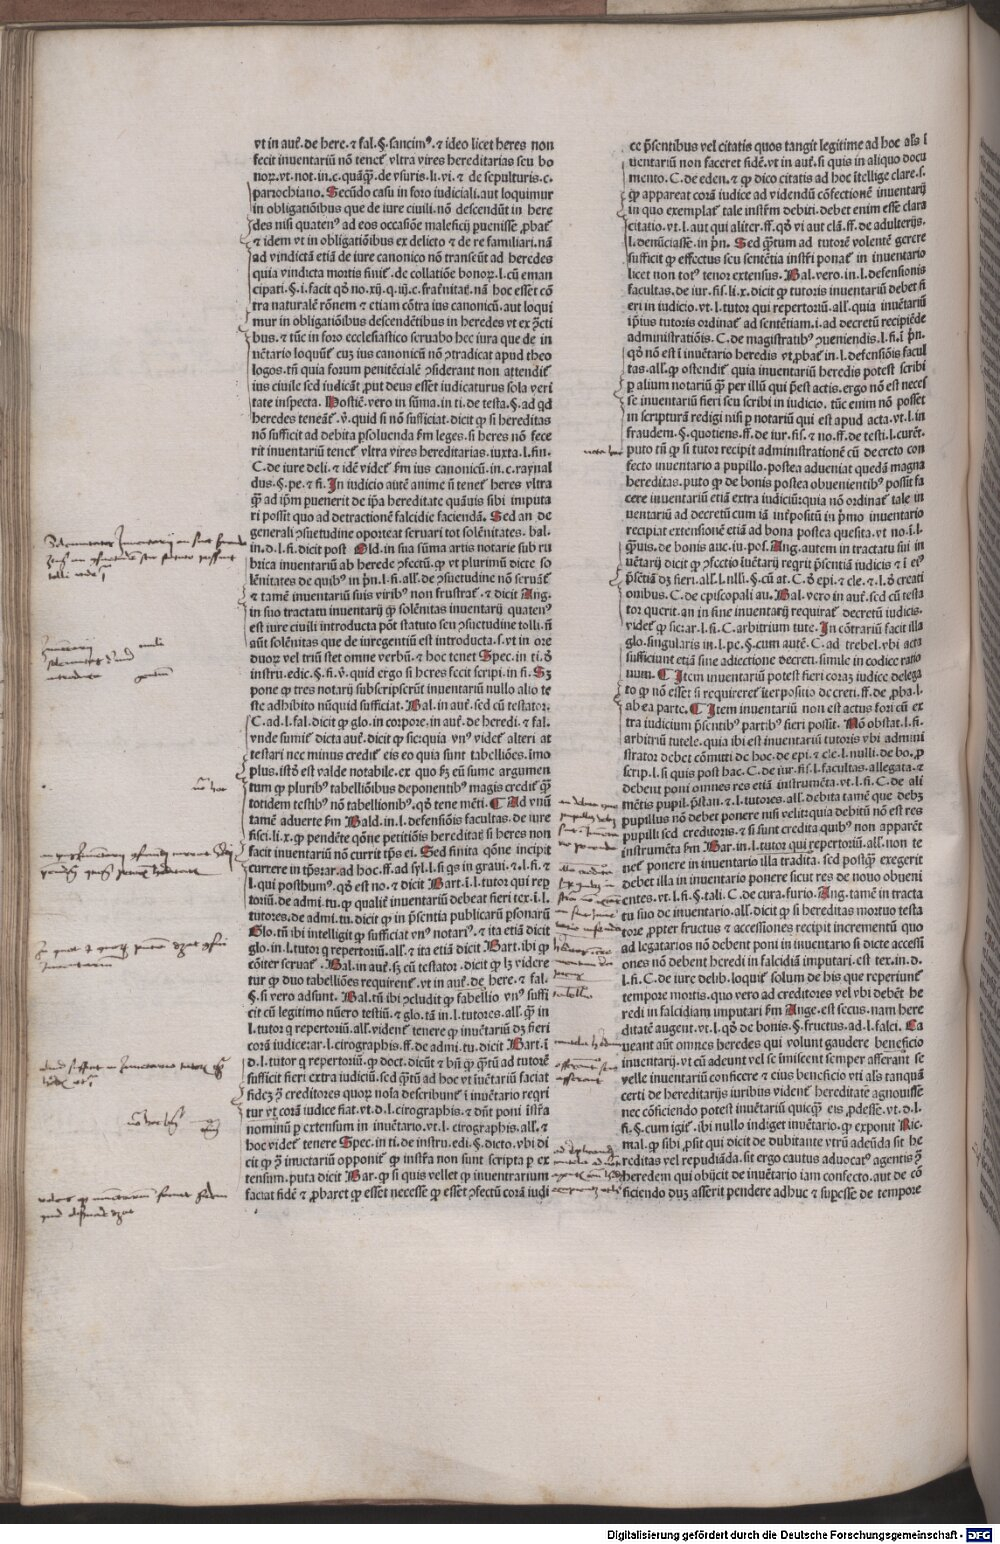 vt in aut̃. de here. ⁊ fal. §. sancimꝰ. ⁊ ideo licet heres non
fecit inuentariũ nõ tenet̃ vltra vires hereditarias seu bo
noꝝ. vt. not. in. c. quãq̃ꝫ. de vsuris. li. vi. ⁊ de sepulturis. c.
parrochiano. Secũdo casu in foro iudiciali. aut loquimur
in obligatiõibus que de iure ciuili. nõ descendũt in here
des nisi quatenꝰ ad eos occasiõe maleficij puenisse ꝓbat̃
⁊ idem vt in obligatiõibus ex delicto ⁊ de re familiari. nã
ad vindictã etiã de iure canonico nõ transeũt ad heredes
quia vindicta mortis finit̃. de collatiõe bonoꝝ. l. cũ eman
cipati. §. i. facit qõ no. xij. q. iij. c. frat̃nitat̃. nã hoc esset cõ
tra naturalẽ rõnem ⁊ etiam cõtra ius canonicũ. aut loqui
mur in obligatiõibus descendẽtibus in heredes vt ex ꝯcti
bus. ⁊ tũc in foro ecclesiastico seruabo hec iura que de in
uẽtario loquũt̃ cuꝫ ius canonicũ nõ ꝯtradicat apud theo
logos. tñ quia forum penitẽciale ꝯsiderant non attendit̃
ius ciuile sed iudicãt ꝓut deus esset iudicaturus sola veri
tate inspecta. Hostiẽ. vero in sũma. in ti. de testa. §. ad qd
heredes teneãt̃. v̾. quid si nõ sufficiat. dicit ꝙ si hereditas
nõ sufficit ad debita ꝑsoluenda ẜm leges. si heres nõ fece
rit inuentariũ tenet̃ vltra vires hereditarias. iuxta. l. fin.
C. de iure deli. ⁊ idẽ videt̃ ẜm ius canonicũ. in. c. raynal
dus. §. pe. ⁊ fi. In iudicio autẽ anime ñ tenet̃ heres vltra
q̃ꝫ ad ip̃m peruenerit de ip̃a hereditate quãuis sibi imputa
ri possit quo ad detractionẽ falcidie faciendã. Sed an de
generali ꝯsuetudine oporteat seruari tot solẽnitates. bal.
in. d. l. fi. dicit post Old. in sua sũma artis notarie sub ru
brica inuentariũ ab herede ꝯfectũ. ꝙ vt plurimũ dicte so
lẽnitates de quibꝰ in p̃n. l. fi. all̃. de ꝯsuetudine nõ seruãt̃
⁊ tamẽ inuentariũ suis viribꝰ non frustrat̃. ⁊ dicit Ang.
in suo tractatu inuentarij ꝙ solẽnitas inuentarij quatenꝰ
est iure ciuili introducta põt statuto seu ꝯsuetudine tolli. ñ
aũt solẽnitas que de iuregentiũ est introducta. s. vt in ore
duoꝝ vel triũ stet omne verbũ. ⁊ hoc tenet Spec. in ti. ð
instru. edic. §. fi. v̾. quid ergo si heres fecit scripi. in fi. Sꝫ
pone ꝙ tres notarij subscripserũt inuentariũ nullo alio te
ste adhibito nũquid sufficiat. Bal. in aut̃. sed cũ testator.
C. ad. l. fal. dicit ꝙ glo. in corpore. in aut̃. de heredi. ⁊ fal.
vnde sumit̃ dicta aut̃. dicit ꝙ sic: quia vnꝰ videt̃ alteri at
testari nec minus credit̃ eis eo quia sunt tabelliões. imo
plus. istõ est valde notabile. ex quo ẜꝫ eũ sume argumen
tum ꝙ pluribꝰ tabelliõibus deponentibꝰ magis credit̃ q̃ꝫ
totidem testibꝰ nõ tabellionibꝰ. qõ tene mẽti. ¶ Ad vnũ
tamẽ aduerte ẜm Bald. in. l. defensiõis facultas. de iure
fisci. li. x. ꝙ pendẽte q̃one petitiõis hereditat̃ si heres non
facit inuentariũ nõ currit tp̃s ei. Sed finita q̃one incipit
currere in tp̃s: ar. ad hoc. ff. ad syl. l. si q̃s in graui. ⁊. l. fi. ⁊
l. qui posthumꝰ. qõ est no. ⁊ dicit Bart. i. l. tutor qui rep
toriũ. de admi. tu. ꝙ qualit̃ inuentariũ debeat fieri tex. i. l.
tutores. de admi. tu. dicit ꝙ in p̃sentia publicarũ ꝑsonarũ
Glo. tñ ibi intelligit ꝙ sufficiat vnꝰ notariꝰ. ⁊ ita etiã dicit
glo. in. l. tutor q̃ repertoriũ. all̃. ⁊ ita etiã dicit Bart. ibi ꝙ
cõiter seruat̃. Bal. in aut̃. sꝫ cũ testator. dicit ꝙ lꝫ videre
tur ꝙ duo tabelliões requirent̃. vt in aut̃. de here. ⁊ fal.
§. si vero adsunt. Bal. tñ ibi ꝯcludit ꝙ tabellio vnꝰ suffi
cit cũ legitimo nũero testiũ. ⁊ glo. tã in. l. tutores. all̃. q̃ꝫ in
l. tutor q̃ repertoriũ. all̃. vident̃ tenere ꝙ inuẽtariũ dꝫ fieri
corã iudice: ar. l. cirographis. ff. de admi. tu. dicit Bart. i
d. l. tutor q̃ repertoriũ. ꝙ doct. dicũt ⁊ bñ ꝙ q̃ꝫtũ ad tutorẽ
sufficit fieri extra iudiciũ. sed q̃ꝫtũ ad hoc vt iuẽtariũ faciat
fidẽꝫ ꝯ̃ creditores quoꝝ noĩa describunt̃ ĩ inuẽtario req̃ri
tur vt corã iudice fiat. vt. d. l. cirographis. ⁊ dñt poni ĩstr̃a
nominũ ꝑ extensum in inuẽtario. vt. l. cirographis. all̃. ⁊
hoc videt̃ tenere Spec. in ti. de instru. edi. §. dicto. vbi di
cit ꝙ ꝯ̃ inuẽtariũ opponit̃ ꝙ instr̃a non sunt scripta ꝑ ex
tensum. puta dicit Bar. ꝙ si quis vellet ꝙ inuentarium
faciat fidẽ ⁊ ꝓbaret ꝙ esset necesse ꝙ esset ꝯfectũ corã iudi
ce p̃sentibus vel citatis quos tangit legitime ad hoc al̃s ĩ
uentariũ non faceret fidẽ. vt in aut̃. si quis in aliquo docu
mento. C. de eden. ⁊ ꝙ dico citatis ad hoc ĩtellige clare. s.
ꝙ appareat corã iudice ad videndũ cõfectionẽ inuentarij
in quo exemplat̃ tale instr̃m debiti. debet enim esse clara
citatio. vt. l. aut qui aliter. ff. qõ vi aut clã. ff. de adulterijs.
l. denũciasse. in p̃n. Sed q̃ꝫtum ad tutorẽ volentẽ gerere
sufficit ꝙ effectus seu sentẽtia instr̃i ponat̃ in inuentario
licet non totꝰ tenor extensus. Bal. vero. in. l. defensionis
facultas. de iur. fis. li. x. dicit ꝙ tutoris inuentariũ debet fi
eri in iudicio. vt. l. tutor qui repertoriũ. all̃. quia inuẽtariũ
ip̃ius tutoris ordinat̃ ad sentẽtiam. i. ad decretũ recipiẽde
administratiõis. C. de magistratibꝰ ꝯueniendis. l. fi. i p̃n.
qõ nõ est ĩ inuẽtario heredis vt ꝓbat̃ in. l. defensiõis facul
tas. all̃. ꝙ ostendit̃ quia inuentariũ heredis potest scribi
ꝑ alium notariũ q̃ꝫ ꝑ illũ qui p̃est actis. ergo nõ est neces
se inuentariũ fieri seu scribi in iudicio. tũc enim nõ posset
in scripturã redigi nisi ꝑ notariũ qui est apud acta. vt. l. in
fraudem. §. quotiens. ff. de iur. fis. ⁊ no. ff. de testi. l. curẽt.
puto tñ ꝙ si tutor recipit administrationẽ cũ decreto con
fecto inuentario a pupillo. postea adueniat quedã magna
hereditas. puto ꝙ de bonis postea obuenientibꝰ possit fa
cere inuentariũ etiã extra iudiciũ: quia nõ ordinat̃ tale in
uentariũ ad decretũ cum iã int̃positũ in p̃mo inuentario
recipiat extensionẽ etiã ad bona postea quesita. vt no. i. l.
q̃ꝫuis. de bonis auc. iu. pos. Ang. autem in tractatu sui in
uẽtarij dicit ꝙ ꝯfectio iuẽtarij req̃rit p̃sentiã iudicis ⁊ i eiꝰ
p̃sẽtiã dꝫ fieri. all̃. l. nĩlli. §. cũ at̃. C. ð epi. ⁊ cle. ⁊. l. ð creati
onibus. C. de episcopali au. Bal. vero in aut̃. sed cũ testa
tor querit. an in sine inuentarij requirat̃ decretũ iudicis.
videt̃ ꝙ sic: ar. l. fi. C. arbitrium tute. In cõtrariũ facit illa
glo. singularis in. l. pe. §. cum autẽ. C. ad trebel. vbi acta
sufficiunt etiã sine adiectione decreti. simile in codice ratio
num. ¶ Item inuentariũ potest fieri coraꝫ iudice delega
to ꝙ nõ esset si requireret̃ iterpositio decreti. ff. de ꝓba. l.
ab ea parte. ¶ Item inuentariũ non est actus fori cũ ex
tra iudicium p̃sentibꝰ partibꝰ fieri possit. Nõ obstat. l. fi.
arbitriũ tutele. quia ibi est inuentariũ tutoris vbi admini
strator debet cõmitti de hoc. de epi. ⁊ cle. l. nulli. de bo. ꝓ
scrip. l. si quis post hac. C. de iur. fis. l. facultas. allegata. ⁊
debent poni omnes res etiã instrumẽta. vt. l. fi. C. de ali
mẽtis pupil. p̃stan. ⁊. l. tutores. all̃. debita tamẽ que debꝫ
pupillus nõ debet ponere nisi velit: quia debitũ nõ est res
pupilli sed creditoris. ⁊ si sunt credita quibꝰ non apparẽt
instrumẽta ẜm Bar. in. l. tutor qui repertoriũ. all̃. non te
net̃ ponere in inuentario illa tradita. sed postq̃ꝫ exegerit
debet illa in inuentario ponere sicut res de nouo obueni
entes. vt. l. fi. §. tali. C. de cura. furio. Ang. tamẽ in tracta
tu suo de inuentario. all̃. dicit ꝙ si hereditas mortuo testa
tore ꝓpter fructus ⁊ accessiones recipit incrementũ quo
ad legatarios nõ debent poni in inuentario si dicte accessi
ones nõ debent heredi in falcidiã imputari. est tex. in. d.
l. fi. C. de iure delib. loquit̃ solum de his que reperiunt̃
tempore mortis. quo vero ad creditores vel vbi debẽt he
redi in falcidiam imputari ẜm Ange. est secus. nam here
ditatẽ augent. vt. l. qõ de bonis. §. fructus. ad. l. falci. Ca
ueant aũt omnes heredes qui volunt gaudere beneficio
inuentarij. vt cũ adeunt vel se imiscent semper asserant se
velle inuentariũ conficere ⁊ eius beneficio vti al̃s tanquã
certi de hereditarijs iuribus vident̃ hereditatẽ agnouisse
nec cõficiendo potest inuẽtariũ quicq̃ꝫ eis ꝓdesse. vt. d. l.
fi. §. cum igit̃. ibi nullo indiget inuẽtario. ꝙ exponit Ric.
mal. ꝙ sibi ꝓsit qui dicit de dubitante vtrũ adeũda sit he
reditas vel repudiãda. sit ergo cautus aduocatꝰ agentis ꝯ̃
heredem qui obijcit de inuẽtario iam confecto. aut de cõ
ficiendo duꝫ asserit pendere adhuc ⁊ supesse de tempore
Digitalisierung gefördert durch die Deutsche Forschungsgemeinschaft - DFG